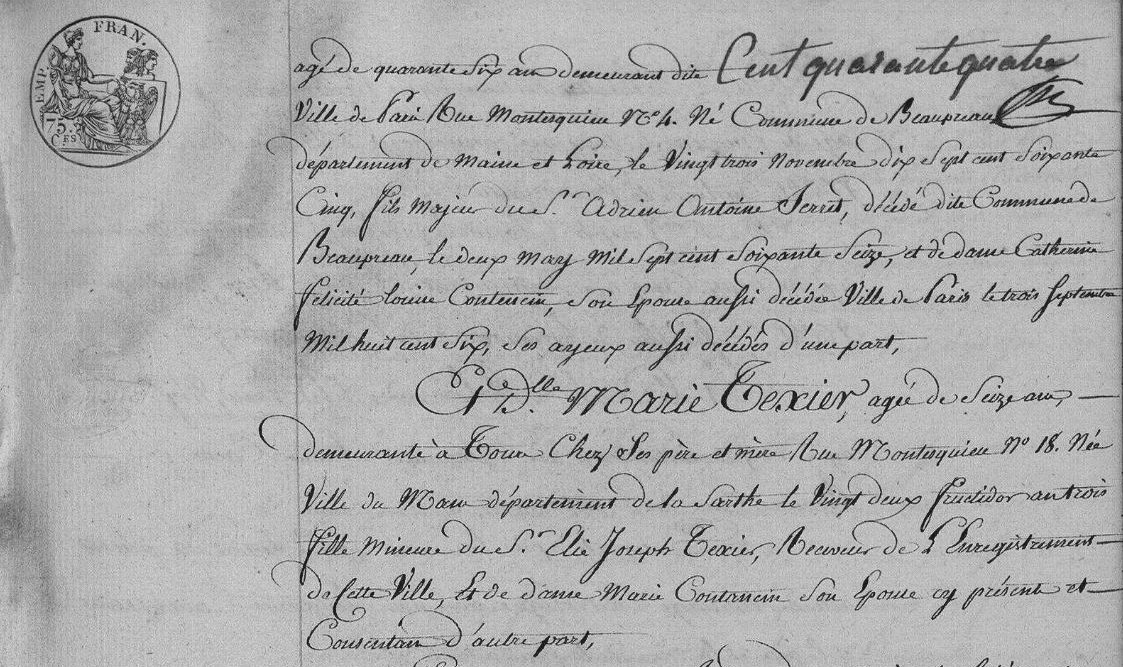 EMP. FRAN.
75.
CES
Cent quarante quatre
agé de quarante Six ans demeurant dite
Ville de Paris Rue Montesquieu N°. 4. Né Commune de Beaupreau
département de Maine et Loire, le Vingt trois Novembre dix Sept cent Soixante
Cinq, fils Majeur du S.r Adrien Antoine Terret, décédé dite Commune de
Beaupreau, le deux May Mil Sept cent Soixante Seize, et de dame Catherine
félicité Louise Contencin, Son Epouse aussi décédée Ville de Paris le trois Septembre
Mil huit cent Six, Ses ayeux aussi décédés d'une part,
Et D.lle Marie Texier, agée de Seize ans,
demeurante à Tours Chez Ses père et mère Rue Montesquieu N° 18. Née
Ville du Mans département de la Sarthe le Vingt deux fructidor an trois
fille Mineure du S.r Elie Joseph Texier, Receveur de L'Enregistrement
de Cette Ville, Et de dame Marie Contencin Son Epouse cy présent et
Consentan d'autre part,